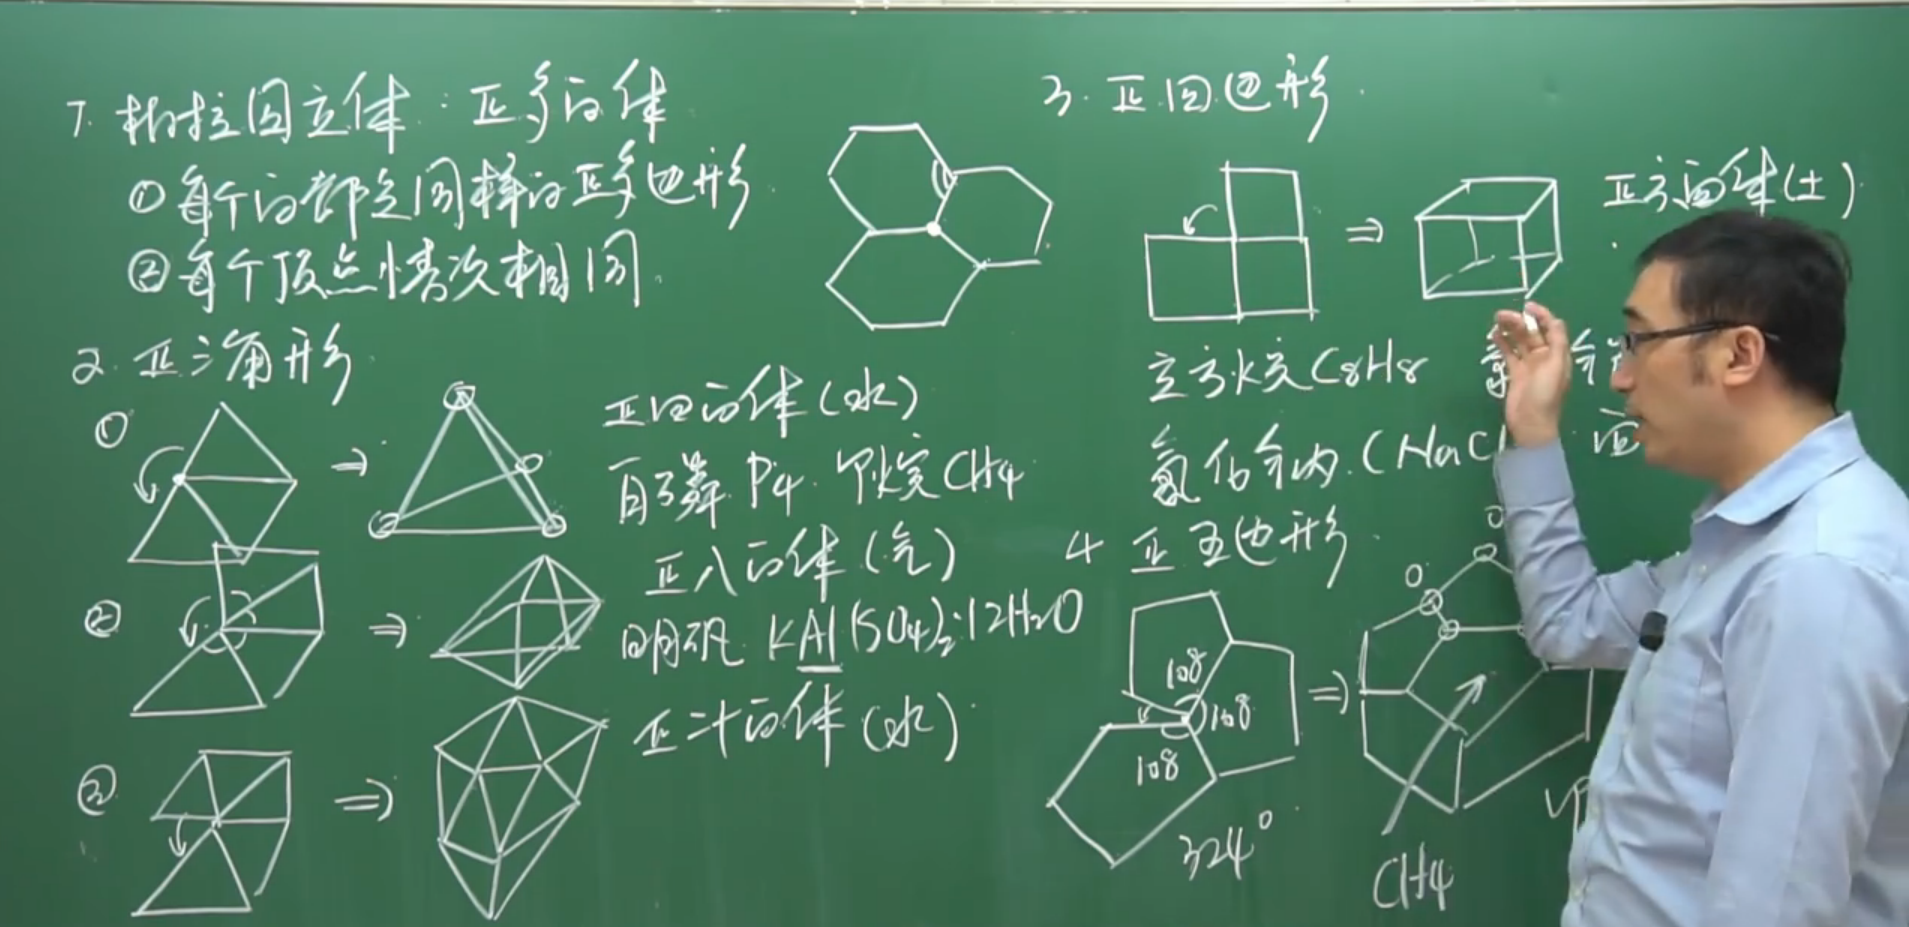 1. 柏拉图立体：正多面体
①每个面都是同样的正多边形
②每个顶点情况相同
2. 正三角形
①
正四面体(火)
白磷 P4 甲烷 CH4
②
正八面体(气)
明矾 KAl(SO4)2·12H2O
③
正二十面体(水)
3. 正四边形
正方面体(土)
立方烷 C8H8
氯化钠 (NaCl
4 正五边形
108
108
108
324°
O
CH4